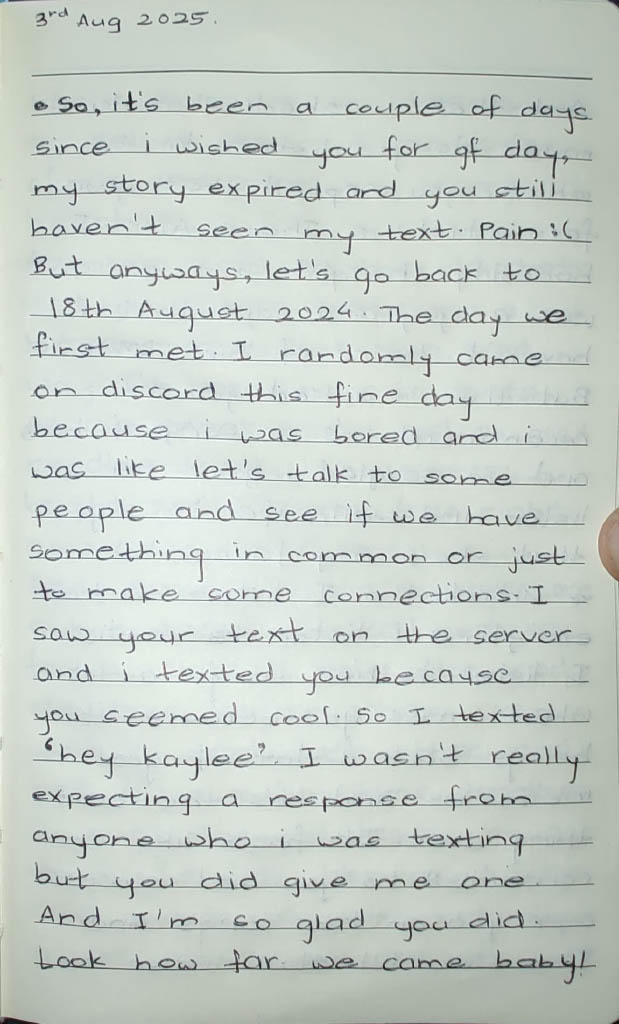 3rd Aug 2025.
• So, it's been a couple of days
since i wished you for gf day,
my story expired and you still
haven't seen my text. Pain :(
But anyways, let's go back to
18th August 2024. The day we
first met. I randomly came
on discord this fine day
because i was bored and i
was like let's talk to some
people and see if we have
something in common or just
to make some connections. I
saw your text on the server
and i texted you because
you seemed cool. So I texted
"hey kaylee". I wasn't really
expecting a response from
anyone who i was texting
but you did give me one.
And I'm so glad you did.
Look how far we came baby!